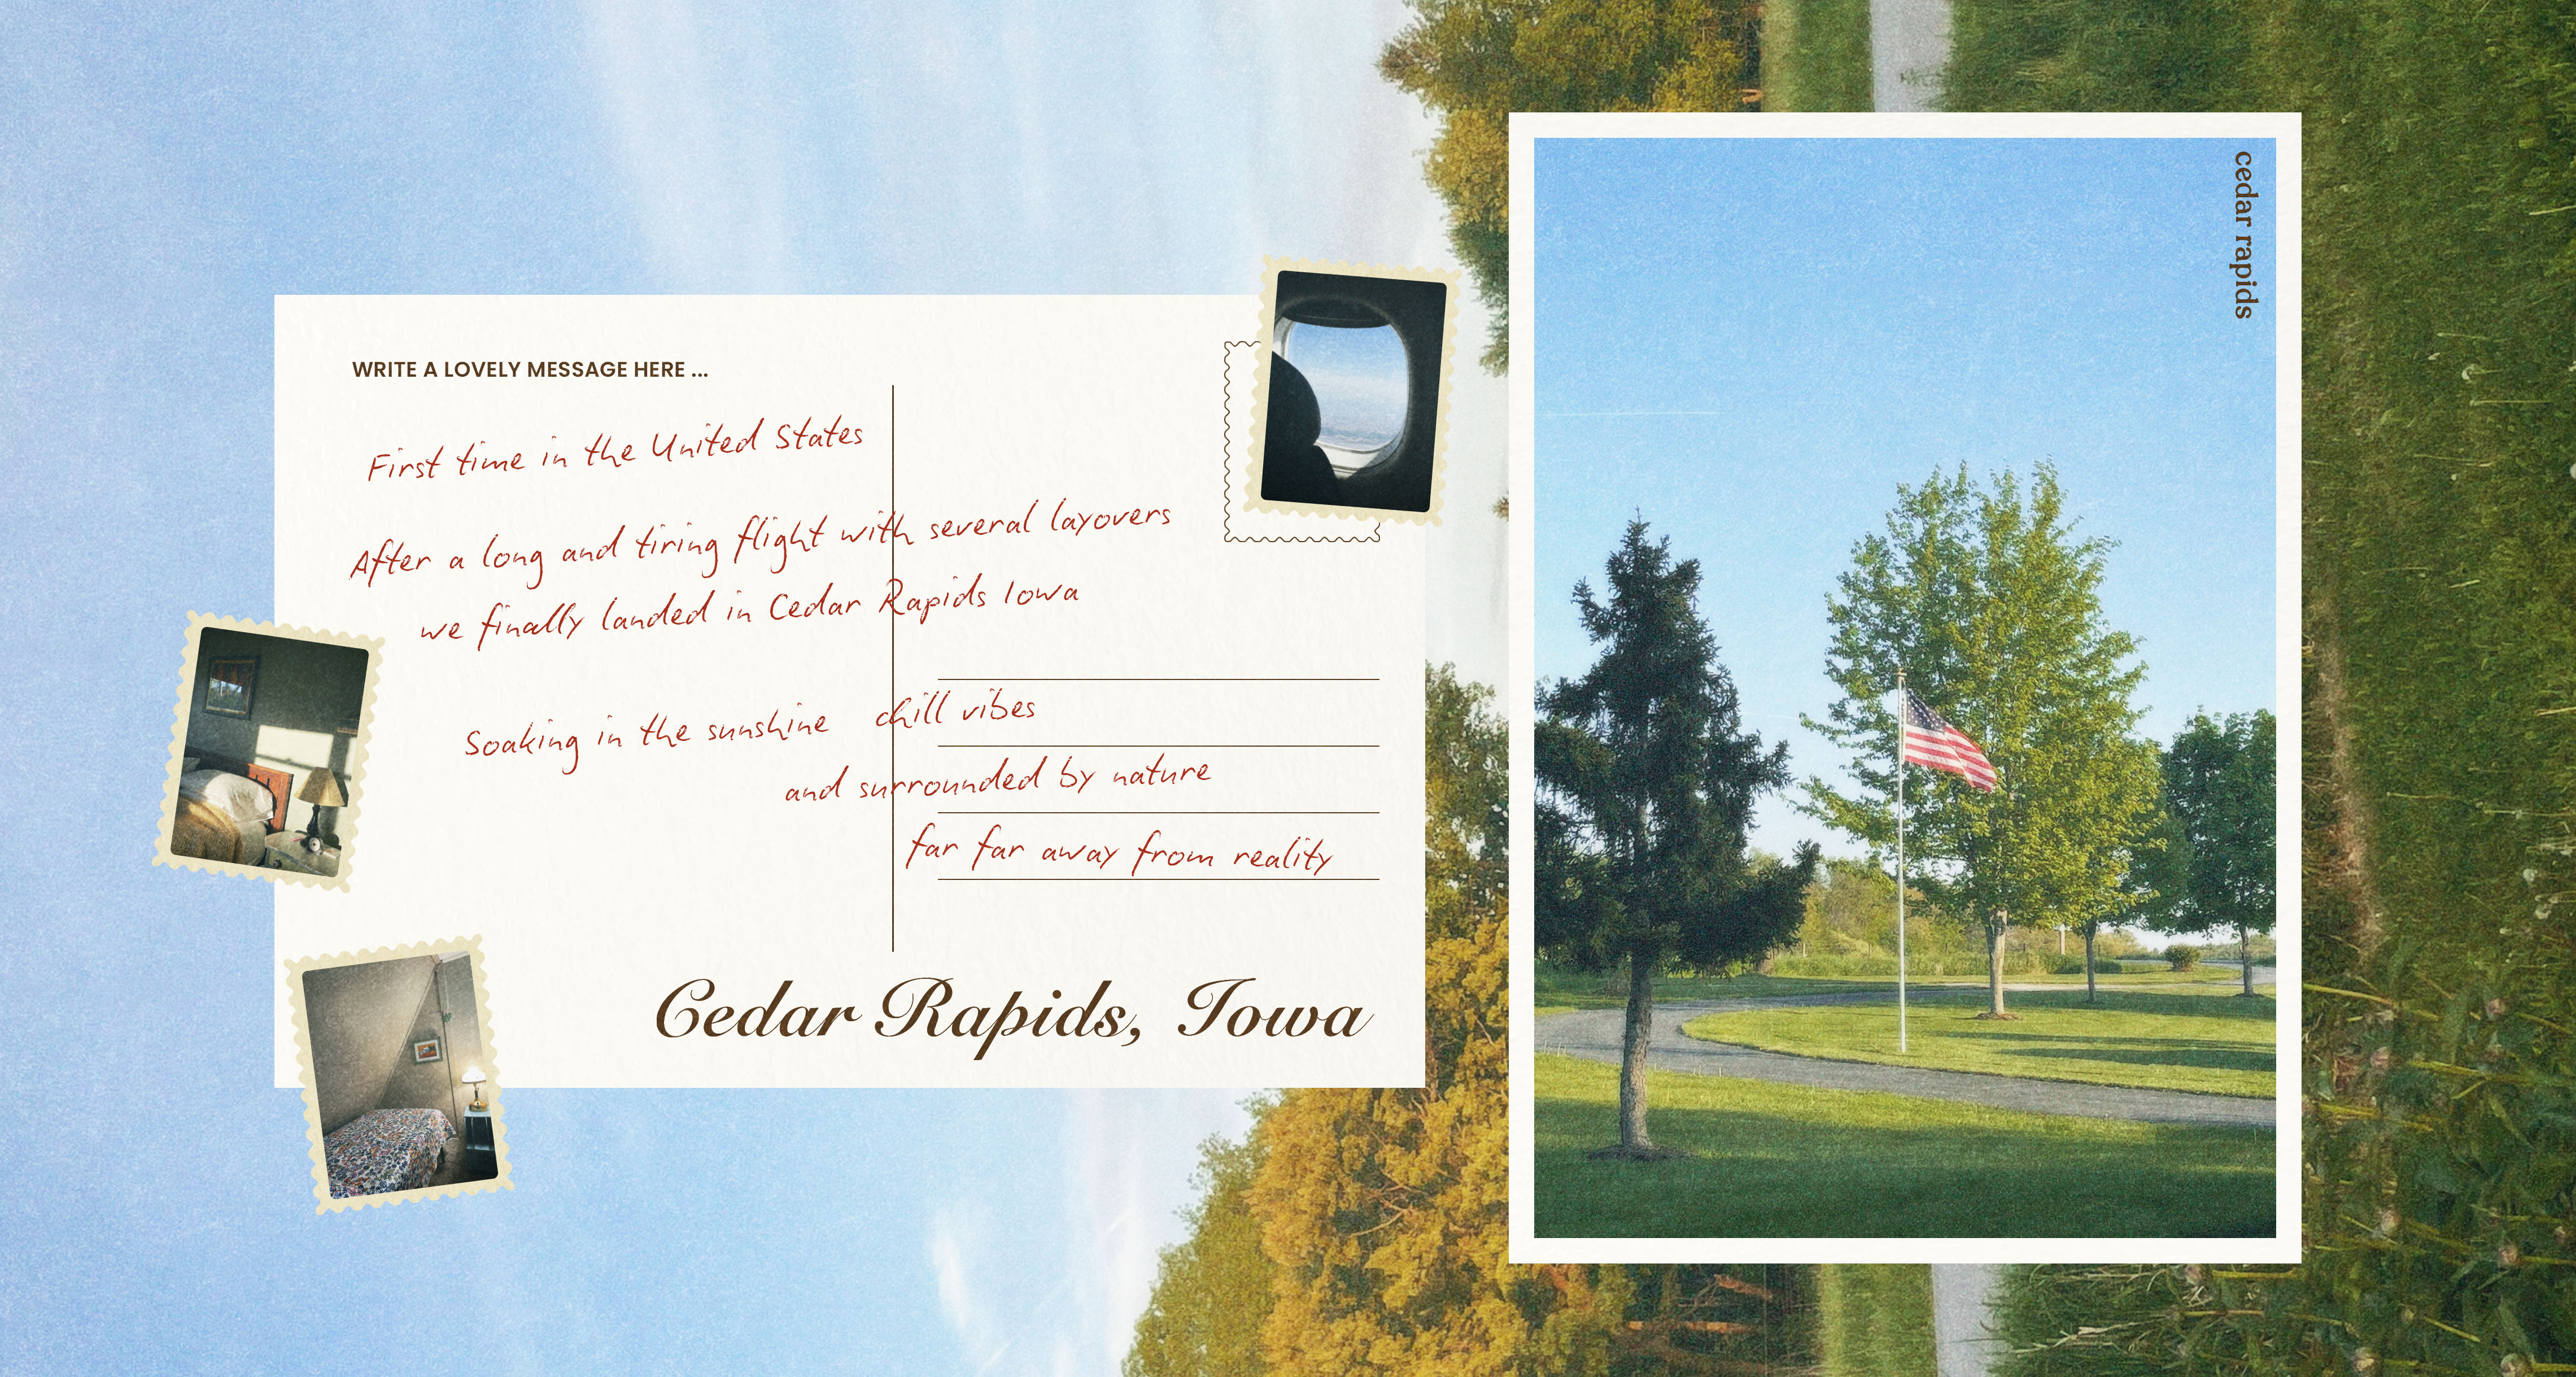 WRITE A LOVELY MESSAGE HERE ...
First time in the United States
After a long and tiring flight with several layovers
we finally landed in Cedar Rapids Iowa
Soaking in the sunshine chill vibes
and surrounded by nature
far far away from reality
Cedar Rapids, Iowa
cedar rapids